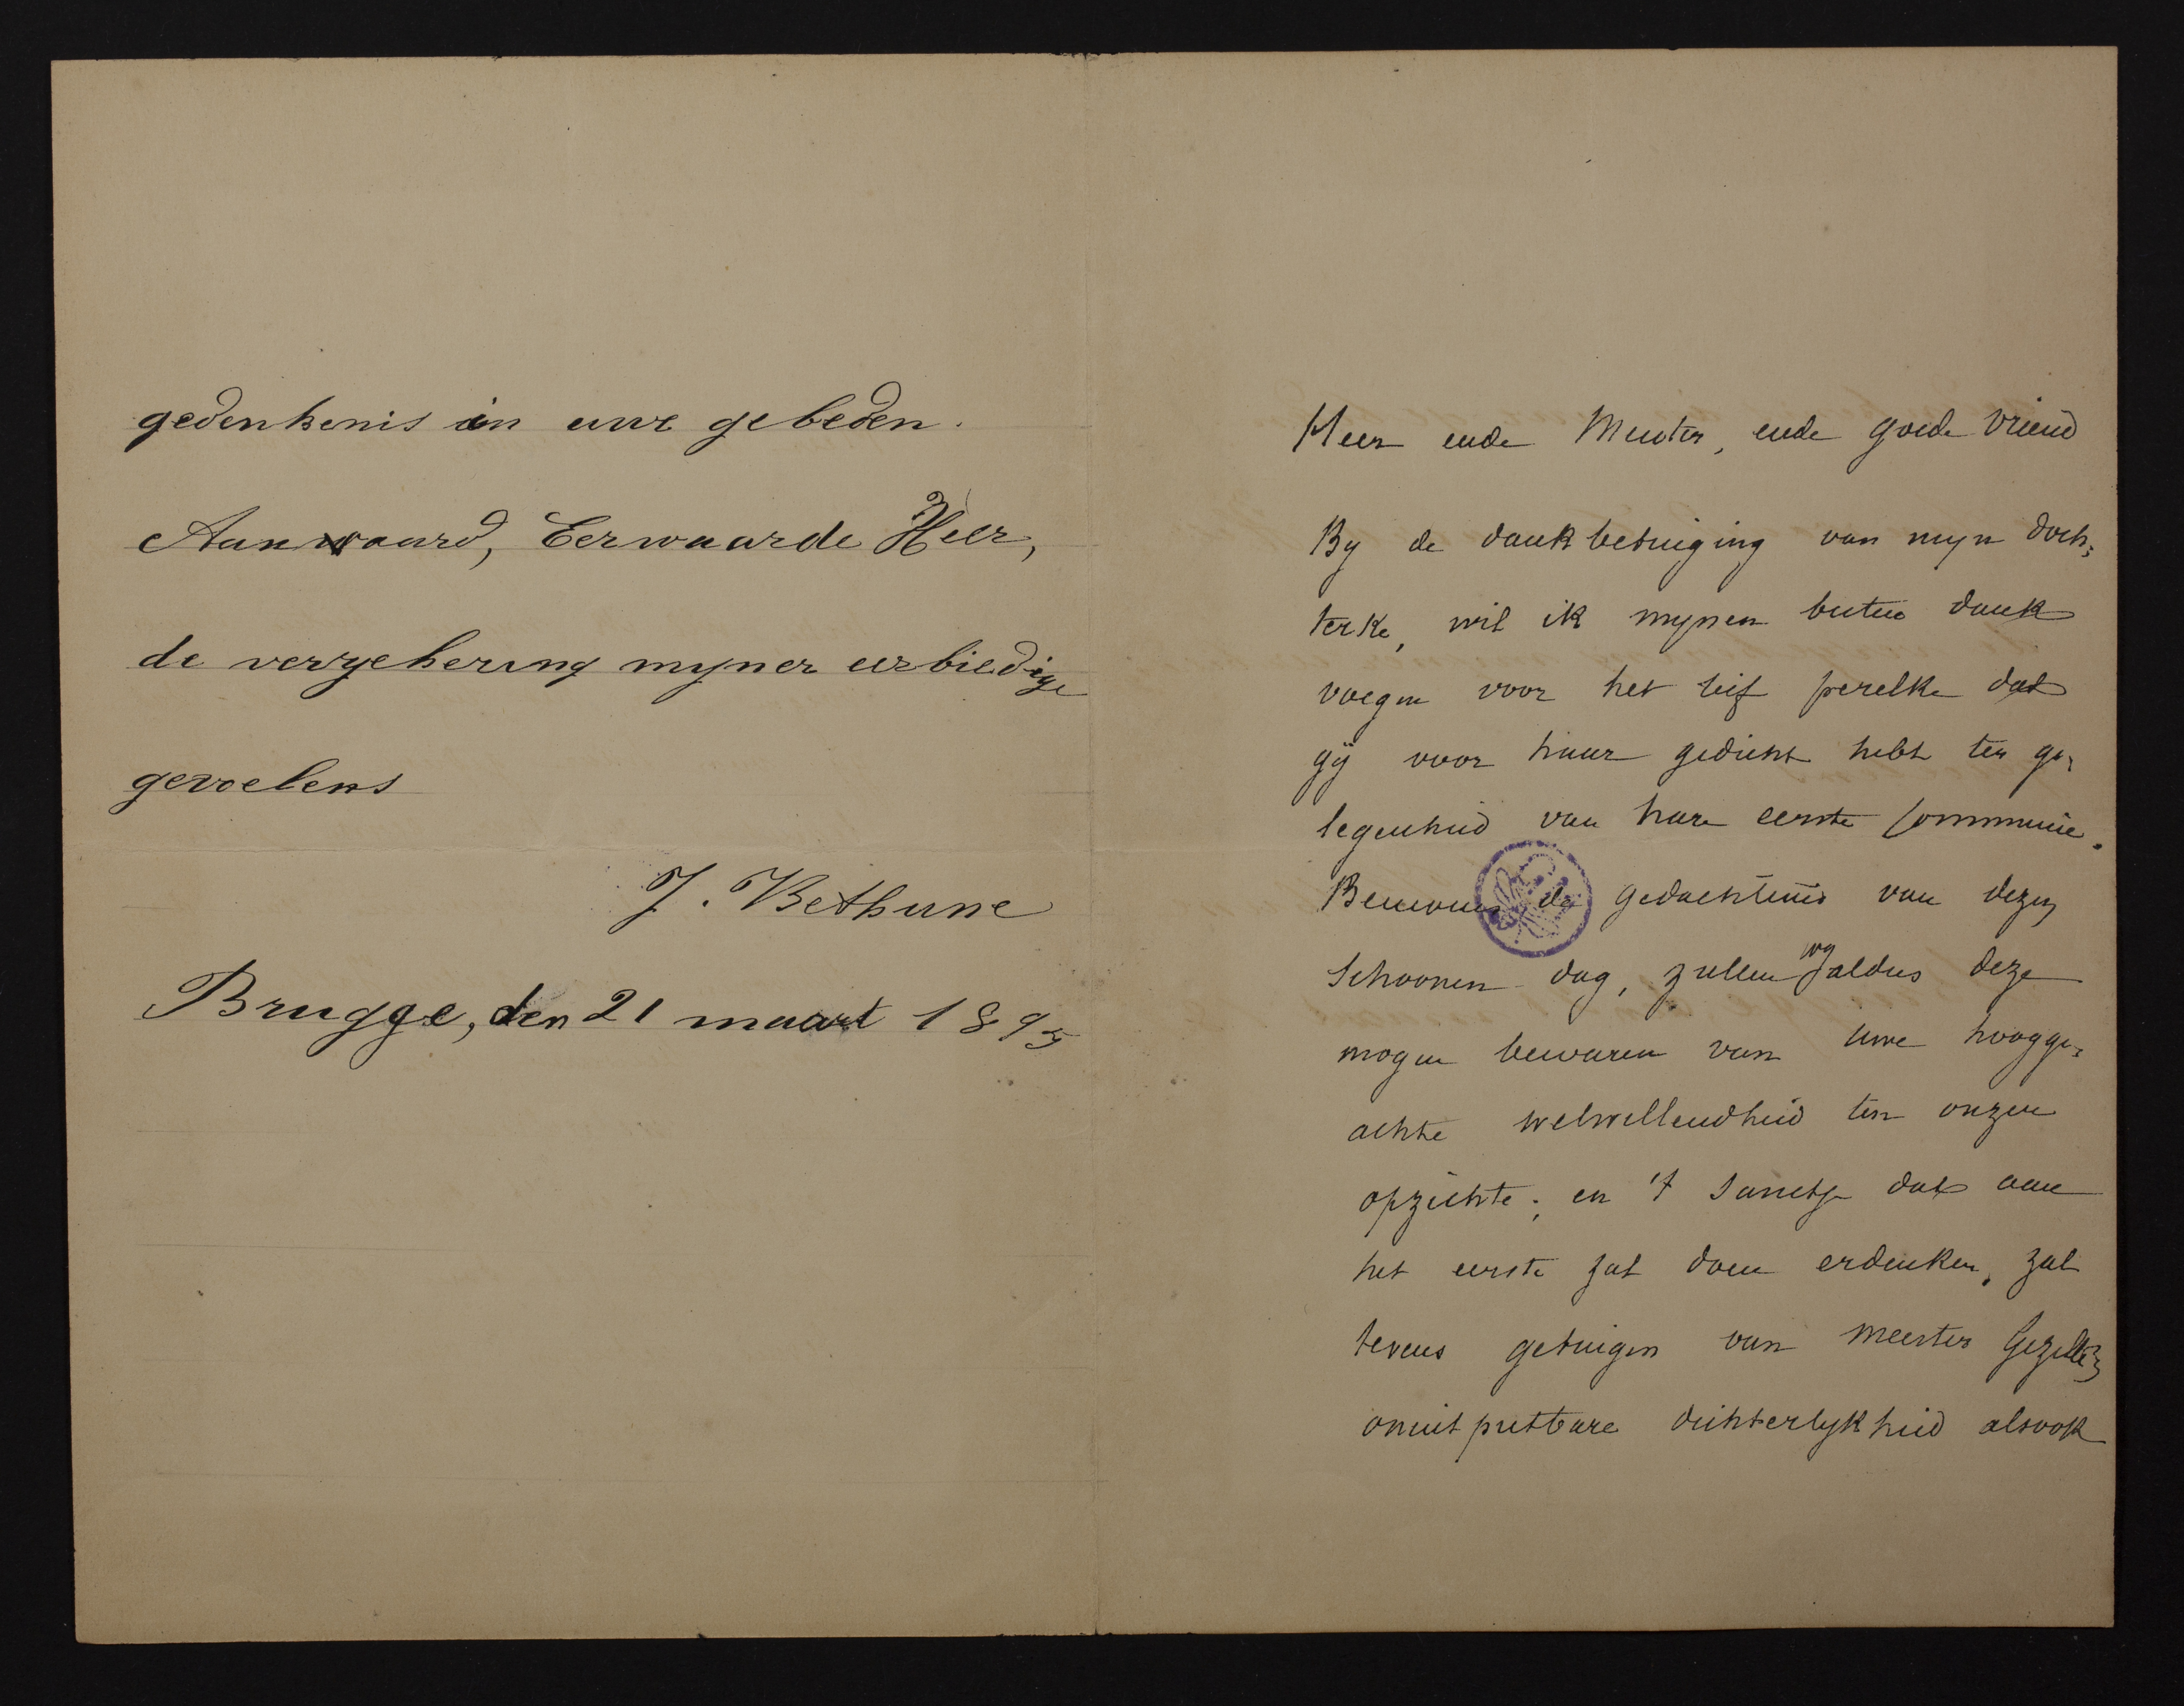 gedenkenis in uwe gebeden.
Aanwaard, Eerwaarde Heer,
de verzekering mijner eerbiedige
gevoelens
J. Bethune
Brugge, den 21 maart 1895
Heer ende Meester, ende goede vriend
By de dankbetuiging van myn doch=
terke, wil ik mynen besten dank
voegen voor het lief perelke dat
gÿ voor haar gedicht hebt ter ge=
legenheid van hare eerste Communie.
Benevens de gedachtenis van dezen
schoonen dag, zullen wy aldus deze
mogen bewaren van uwe hoogge=
achte welwillendheid ten onzen
opzichte; en 't sanctje dat aan
het eerste zal doen erdenken, zal
tevens getuigen van meester Gezelle's
onuitputbare dichterlykheid alsook